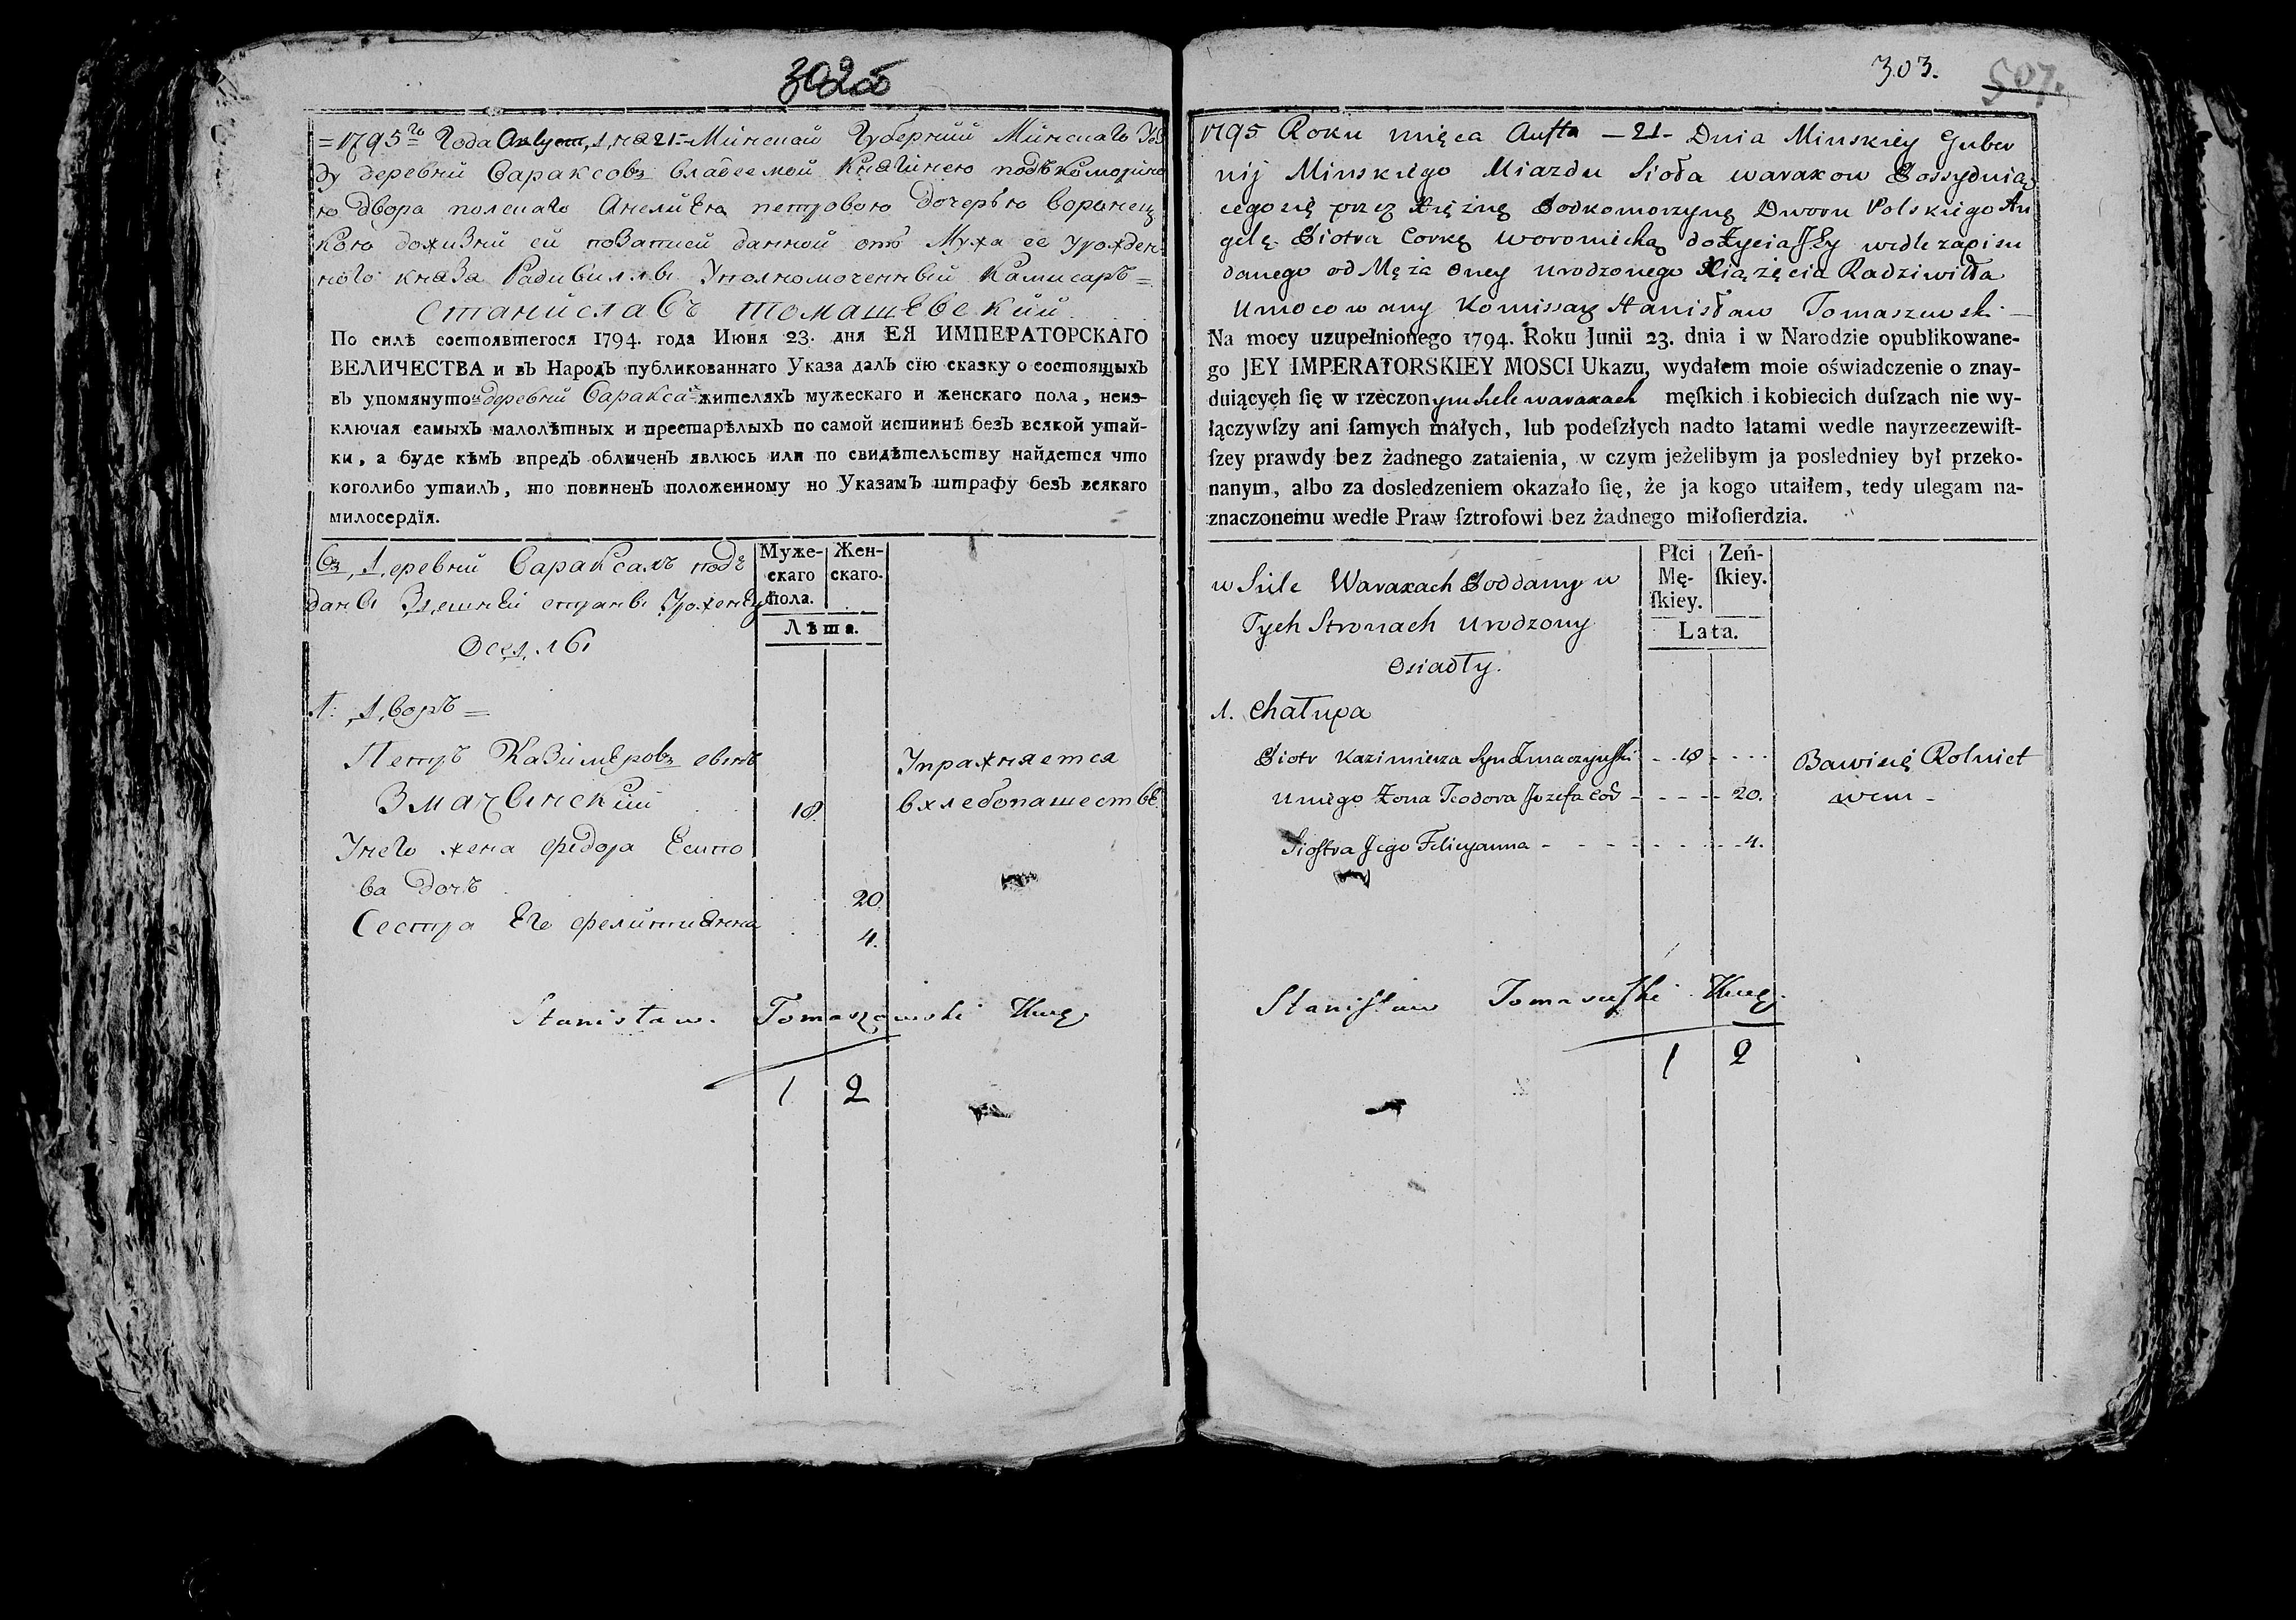 302об
=1795го Года Августа на 21 Минской Губернии Минскаго Уѣз
ду деревни Вараксовъ владеемой Княгинею подъкоморино
ю двора полскаго Анелиею петровою дочерью воронец
кою доживни ей по записи данной отъ Мужа ее урожден
ного князя Радивиллы Уполномоченный Камисаръ=
Станиславъ томашевский
По силѣ состоявшегося 1794. года Июня 23. дня ЕЯ ИМПЕРАТОРСКАГО
ВЕЛИЧЕСТВА и въ Народъ публикованнаго Указа далъ сїю сказку о состоящыхъ
въ упомянутой деревни Варакса жителяхъ мужескаго и женскаго пола, неиз-
ключая самыхъ малолѣтныхъ и престарѣлыхъ по самой истиннѣ безъ всякой утай-
ки, а буде кѣмъ впредъ обличенъ явлюсь или по свидѣтельству найдется что
коголибо утаилъ, то повиненъ положенному по Указамъ штрафу безъ всякаго
милосердїя.
Въ деревни Вараксахъ подъ
даны Здешней страны Урожены
Оседлы
Муже-
скаго
пола.
Жен-
скаго.
Лѣта.
1. дворъ =
Петръ Казимеровъ сынъ
Змачынский 18.
Упражняется
в хлебопашествѣ
Унего жена федора Есипо
ва дочь 20
Сестра Его фелициянна 4.
Stanisław Tomaszewski
1 2
303.
507.
1795 Roku mięca Austa - 21 - Dnia Minskiey Guber
nij Minskiego Uiazdu Sioła waraxow Possyduią
cegosię przez Xiężnę Podkomorzynę Dworu Polskiego An
gelę Piotra Corkę woroniecką dożycia Jey wedle zapisu
danego od Męża Oney urodzonego Xiążęcia Radziwiłła
Umocowany Komissarz Stanisław Tomaszewski
Na mocy uzupełnionego 1794. Roku Junii 23. dnia i w Narodzie opublikowane-
go JEY IMPERATORSKIEY MOSCI Ukazu, wydałem moie oświadczenie o znay-
duiących ſię w rzeczonym siele waraxach męſkich i kobiecich duſzach nie wy-
łączywſzy ani ſamych małych, lub podeſzłych nadto latami wedle nayrzeczewiſt-
ſzey prawdy bez żadnego zataienia, w czym jeżelibym ja posledniey był przeko-
nanym, albo za dosledzeniem okazało ſię, że ja kogo utaiłem, tedy ulegam na-
znaczonemu wedle Praw ſztrofowi bez żadnego miłoſierdzia.
w Siele Waraxach Poddany w
Tych Stronach Urodzony
Osiadły.
Płci
Mę-
ſkiey.
Zeń-
ſkiey.
Lata.
1. Chałupa
Piotr Kazimierza Syn Zmaczynſki - - 18 - - - - Bawisię Rolnict
Uniego Zona Teodora Jozefa Cor - - - - - 20. wem -
Sioſtra Jego Felicyanna - - - - - - - - - 4.
Staniſław Tomaszeſki
1 2